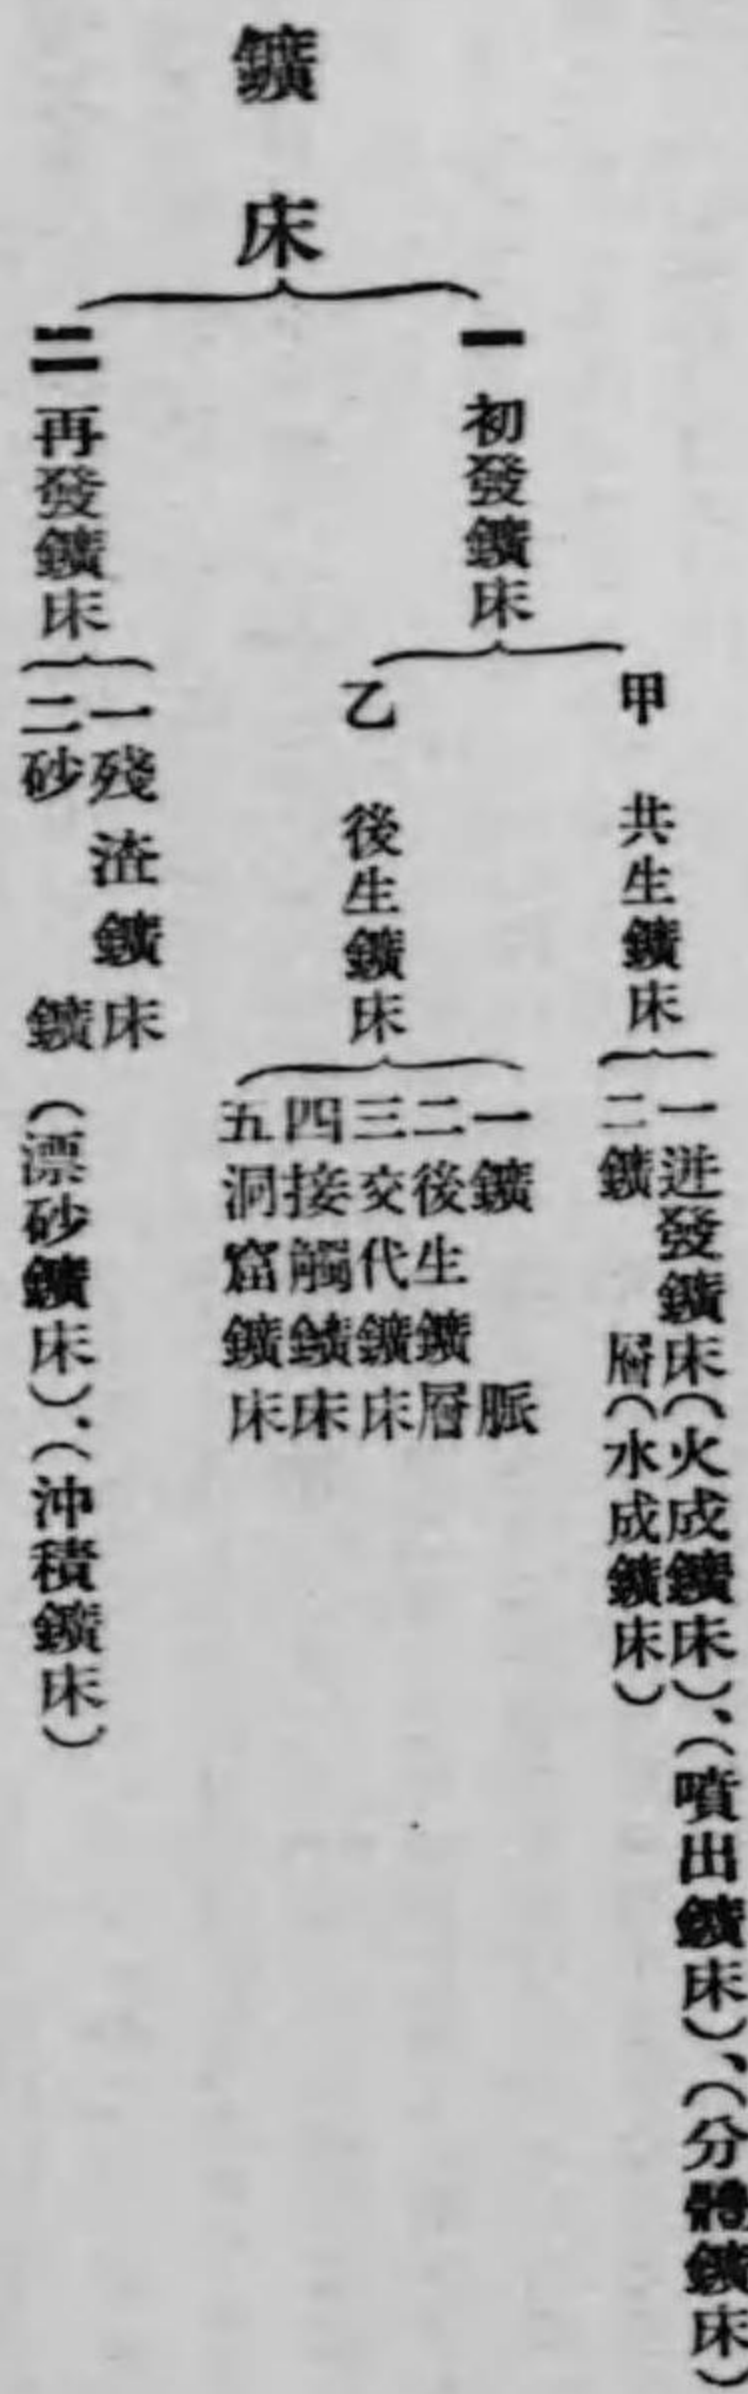 鑛床
一 初發鑛床
甲 共生鑛床
一 迸發鑛床(火成鑛床)、(噴出鑛床)、(分體鑛床)
二 鑛層(水成鑛床)
乙 後生鑛床
一 鑛脈
二 後生鑛層
三 交代鑛床
四 接觸鑛床
五 洞窟鑛床
二 再發鑛床
一 殘渣鑛床
二 砂鑛(漂砂鑛床)、(沖積鑛床)